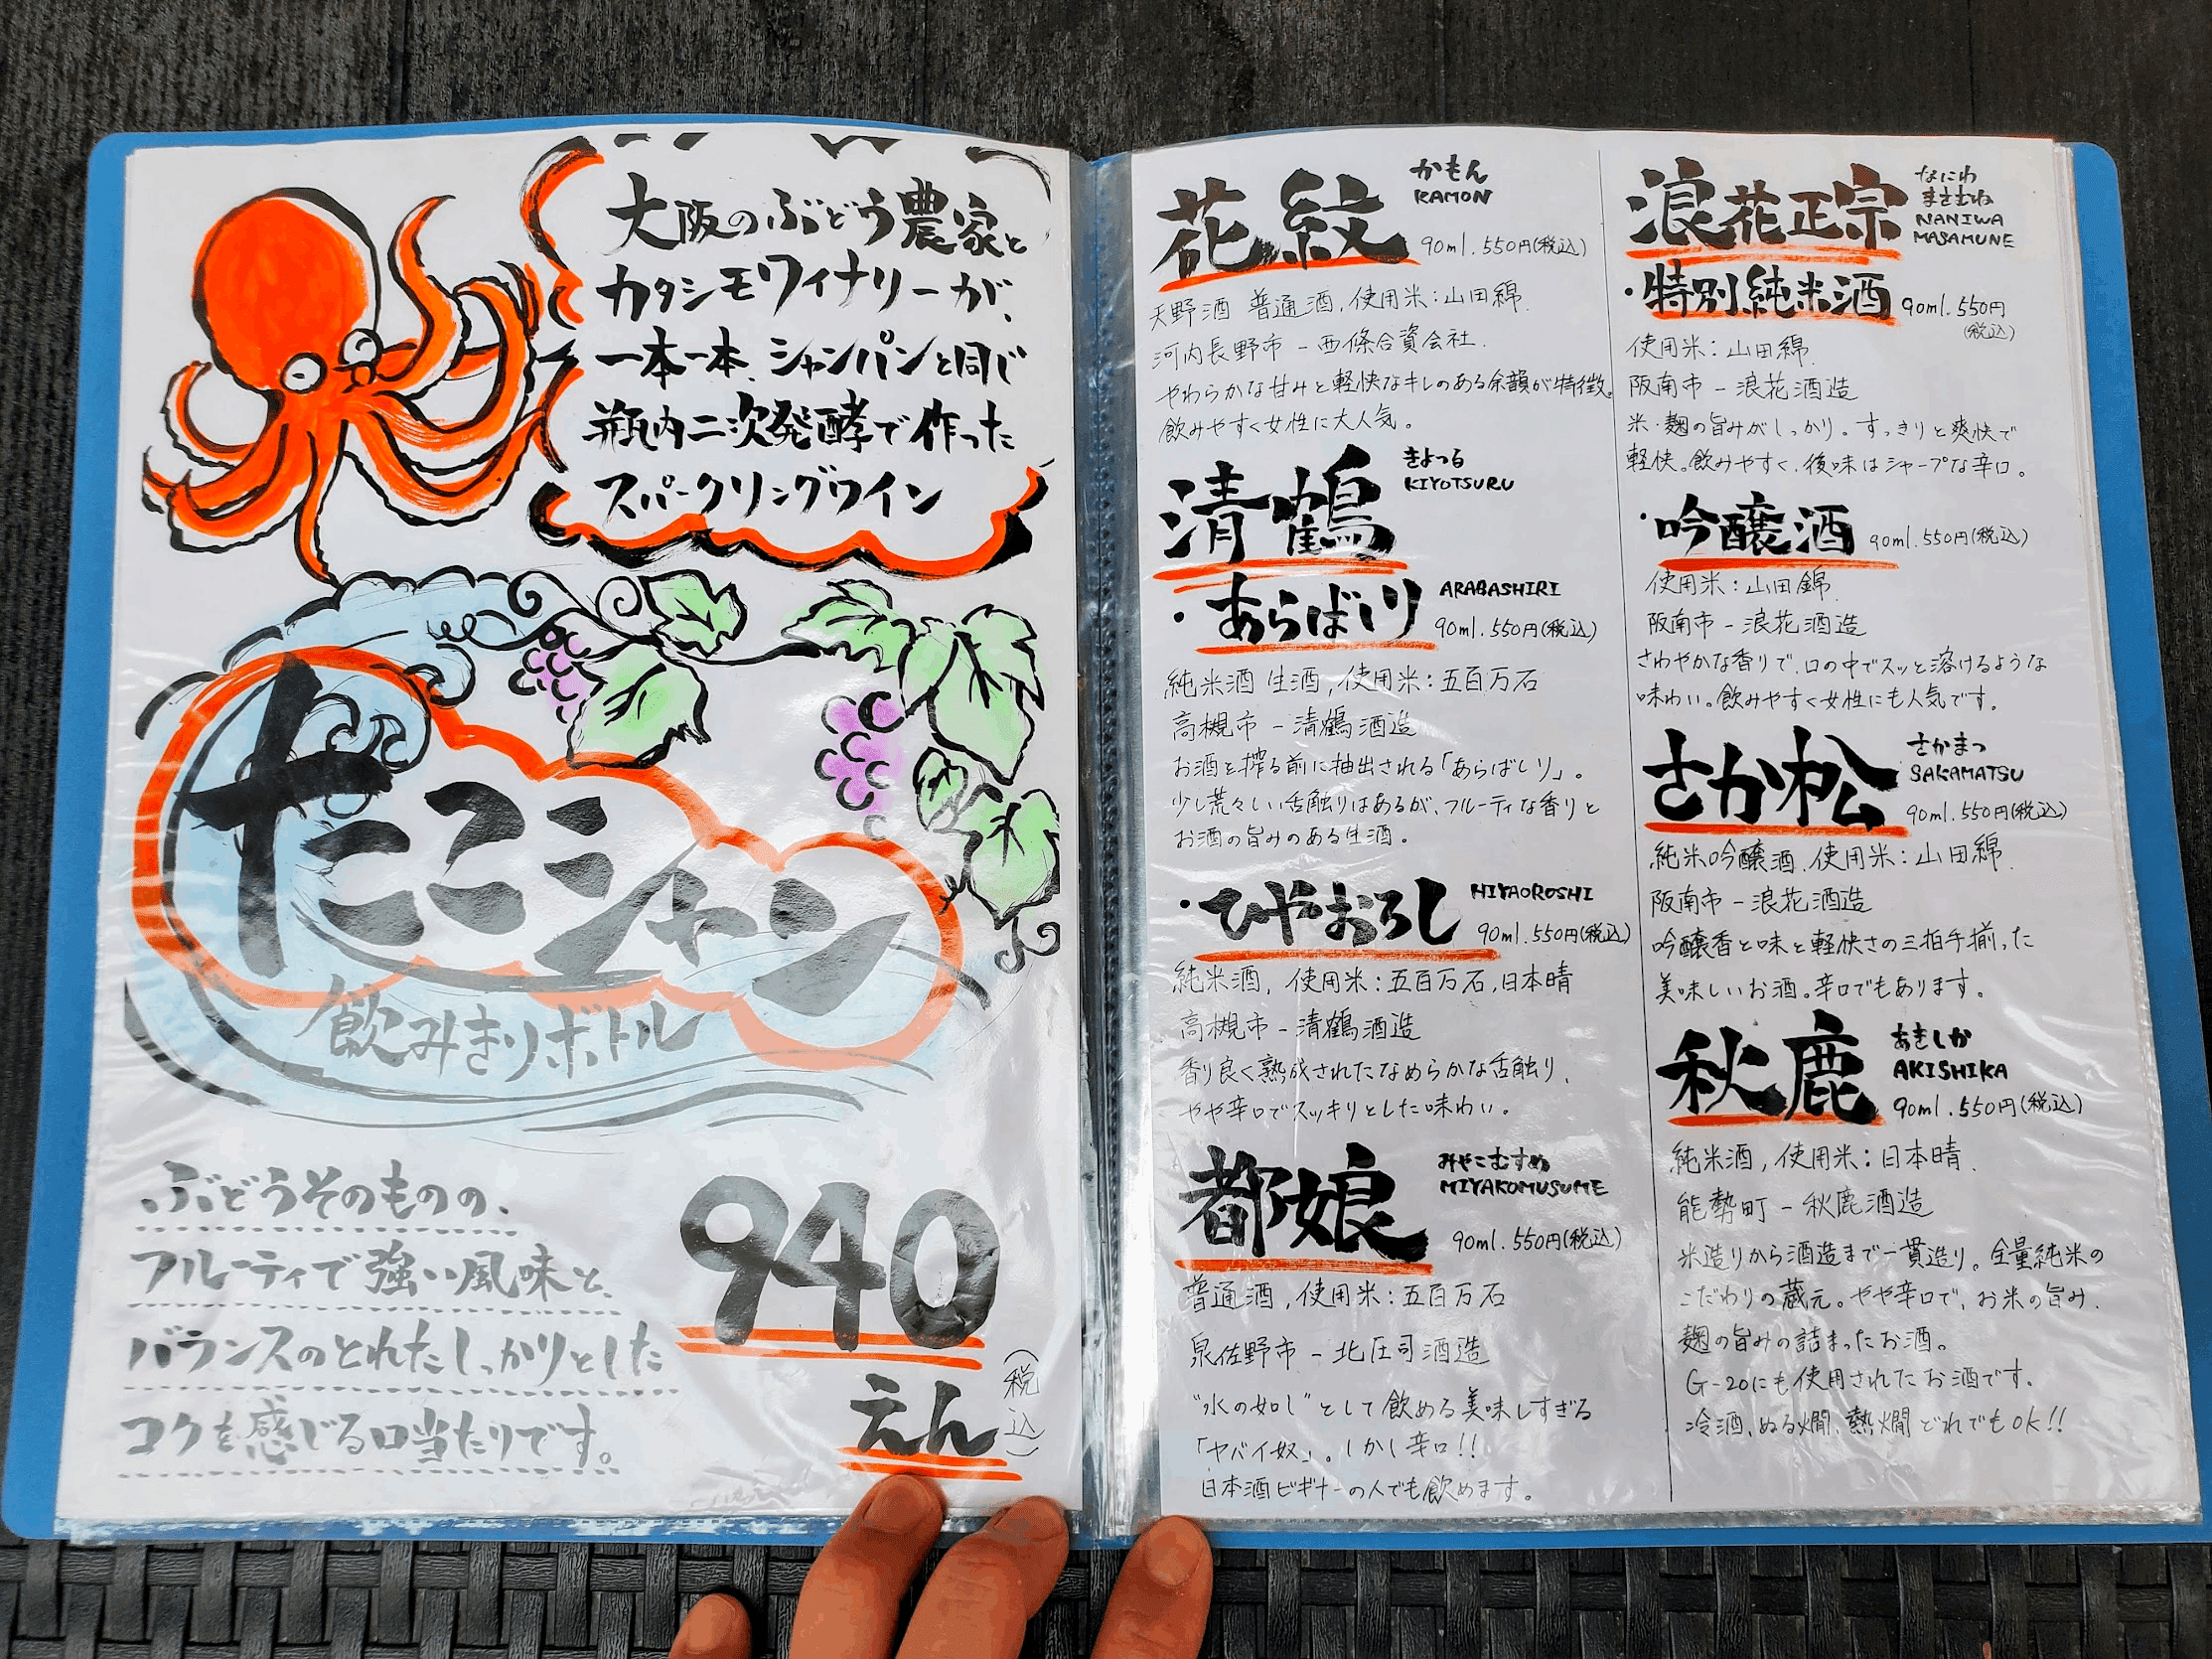 大阪のぶどう農家と
カタシモワイナリーが、
一本一本、シャンパンと同じ
瓶内二次発酵で作った
スパークリングワイン
たこシャン
飲みきりボトル
ぶどうそのものの、
フルーティで強い風味と、
バランスのとれたしっかりとした
コクを感じる口当たりです。
940
えん
(税込)
花紋
かもん
KAMON
90ml.550円(税込)
天野酒 普通酒,使用米:山田錦.
河内長野市-西條合資会社.
やわらかな甘みと軽快なキレのある余韻が特徴。
飲みやすく女性に大人気。
清鶴
きよつる
KIYOTSURU
・あらばしり
ARABASHIRI
90ml.550円(税込)
純米酒 生酒,使用米:五百万石
高槻市-清鶴酒造
お酒を搾る前に抽出される「あらばしり」。
少し荒々しい舌触りはあるが、フルーティな香りと
お酒の旨みのある生酒。
・ひやおろし
HIYAOROSHI
90ml.550円(税込)
純米酒, 使用米:五百万石,日本晴
高槻市-清鶴酒造
香り良く熟成されたなめらかな舌触り、
やや辛口でスッキリとした味わい。
都娘
みやこむすめ
MIYAKOMUSUME
90ml.550円(税込)
普通酒,使用米:五百万石
泉佐野市-北庄司酒造
"水の如し"として飲める美味しすぎる
「ヤバイ奴」。しかし辛口!!
日本酒ビギナーの人でも飲めます。
浪花正宗
なにわ
まさむね
NANIWA
MASAMUNE
・特別純米酒
90ml.550円
(税込)
使用米:山田錦.
阪南市-浪花酒造
米・麹の旨みがしっかり。すっきりと爽快で
軽快。飲みやすく、後味はシャープな辛口。
・吟醸酒
90ml.550円(税込)
使用米:山田錦.
阪南市-浪花酒造
さわやかな香りで、口の中でスッと溶けるような
味わい。飲みやすく女性にも人気です。
さか松
さかまつ
SAKAMATSU
90ml.550円(税込)
純米吟醸酒、使用米:山田錦.
阪南市-浪花酒造
吟醸香と味と軽快さの三拍子揃った
美味しいお酒。辛口でもあります。
秋鹿
あきしか
AKISHIKA
90ml.550円(税込)
純米酒,使用米:日本晴.
能勢町-秋鹿酒造
米造りから酒造まで一貫造り。全量純米の
こだわりの蔵元。やや辛口で、お米の旨み、
麹の旨みの詰まったお酒。
G-20にも使用されたお酒です。
冷酒、ぬる燗、熱燗どれでもOK!!